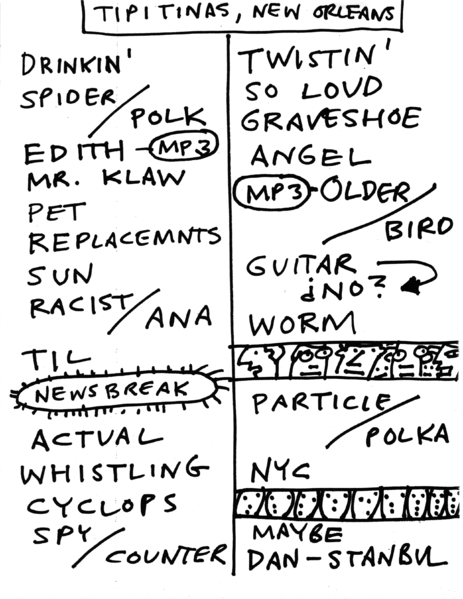 TIPITINAS, NEW ORLEANS
DRINKIN'
SPIDER/
POLK
EDITH - MP3
MR. KLAW
PET
REPLACEMNTS
SUN
RACIST/
ANA
TIL
NEWSBREAK
ACTUAL
WHISTLING
CYCLOPS
SPY/
COUNTER
TWISTIN'
SO LOUD
GRAVESHOE
ANGEL
MP3 - OLDER/
BIRD
GUITAR
¿NO?
WORM
PARTICLE/
POLKA
NYC
MAYBE
DAN-STANBUL